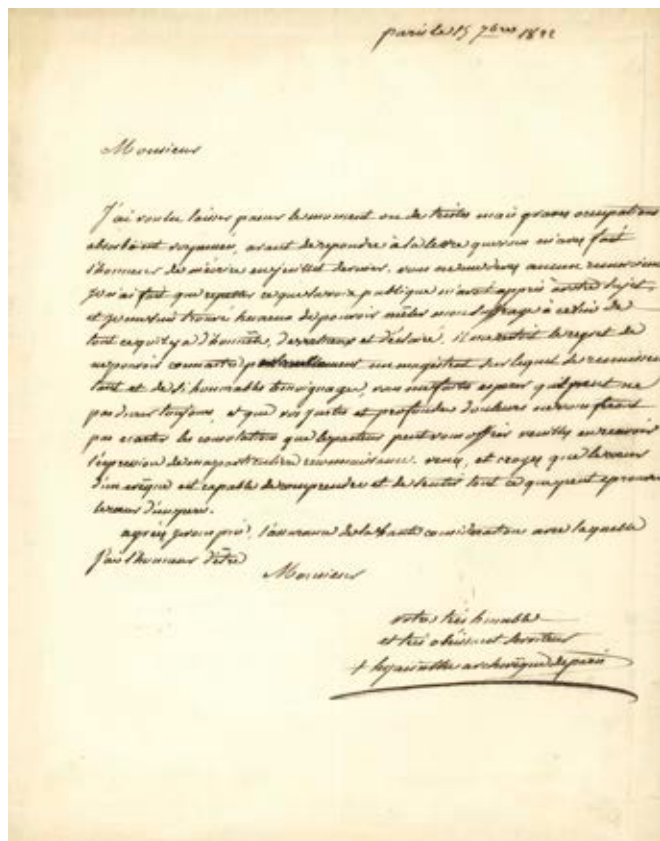 paris le 15 7bre 1822
Monsieur
J'ai voulu laisser passer le moment ou de tristes mais graves occupations
absorboient vos momens, avant de repondre à la lettre que vous m'aves fait
l'honneur de m'écrire en juillet dernier. vous ne me deves aucun remerciment
je n'ai fait que repetter ce que la voix publique m'avoit appris à votre sujet,
et je me suis trouvé heureux de pouvoir mêler mon suffrage à celui de
tout ce qu'il y a d'honnête, et d'éclairé. il me restoit le regret de
ne pouvoir connaitre un magistrat sur lequel se reunissent
tant et de si honorables temoignages, vous me faites esperer qu'il ne
pas durer toujours, et que vos justes et profondes douleurs ne vous feront
pas ecarter les consolations que le pasteur peut vous offrir veuilles en recevoir
l'expression de ma particuliere reconnoissance. venes, et croyes que le coeur
d'un evêque est capable de comprendre et de sentir tout ce que peut eprouver
le coeur d'un pere.
agrées je vous prie, l'assurance de la haute consideration avec laquelle
j'ai l'honneur d'être
Monsieur
votre très humble
et très obéissant serviteur
+ hyacinthe archevêque de paris